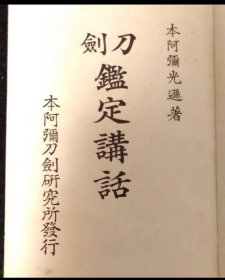 本阿彌光遜著
刀劍鑑定講話
本阿彌刀劍研究所發行